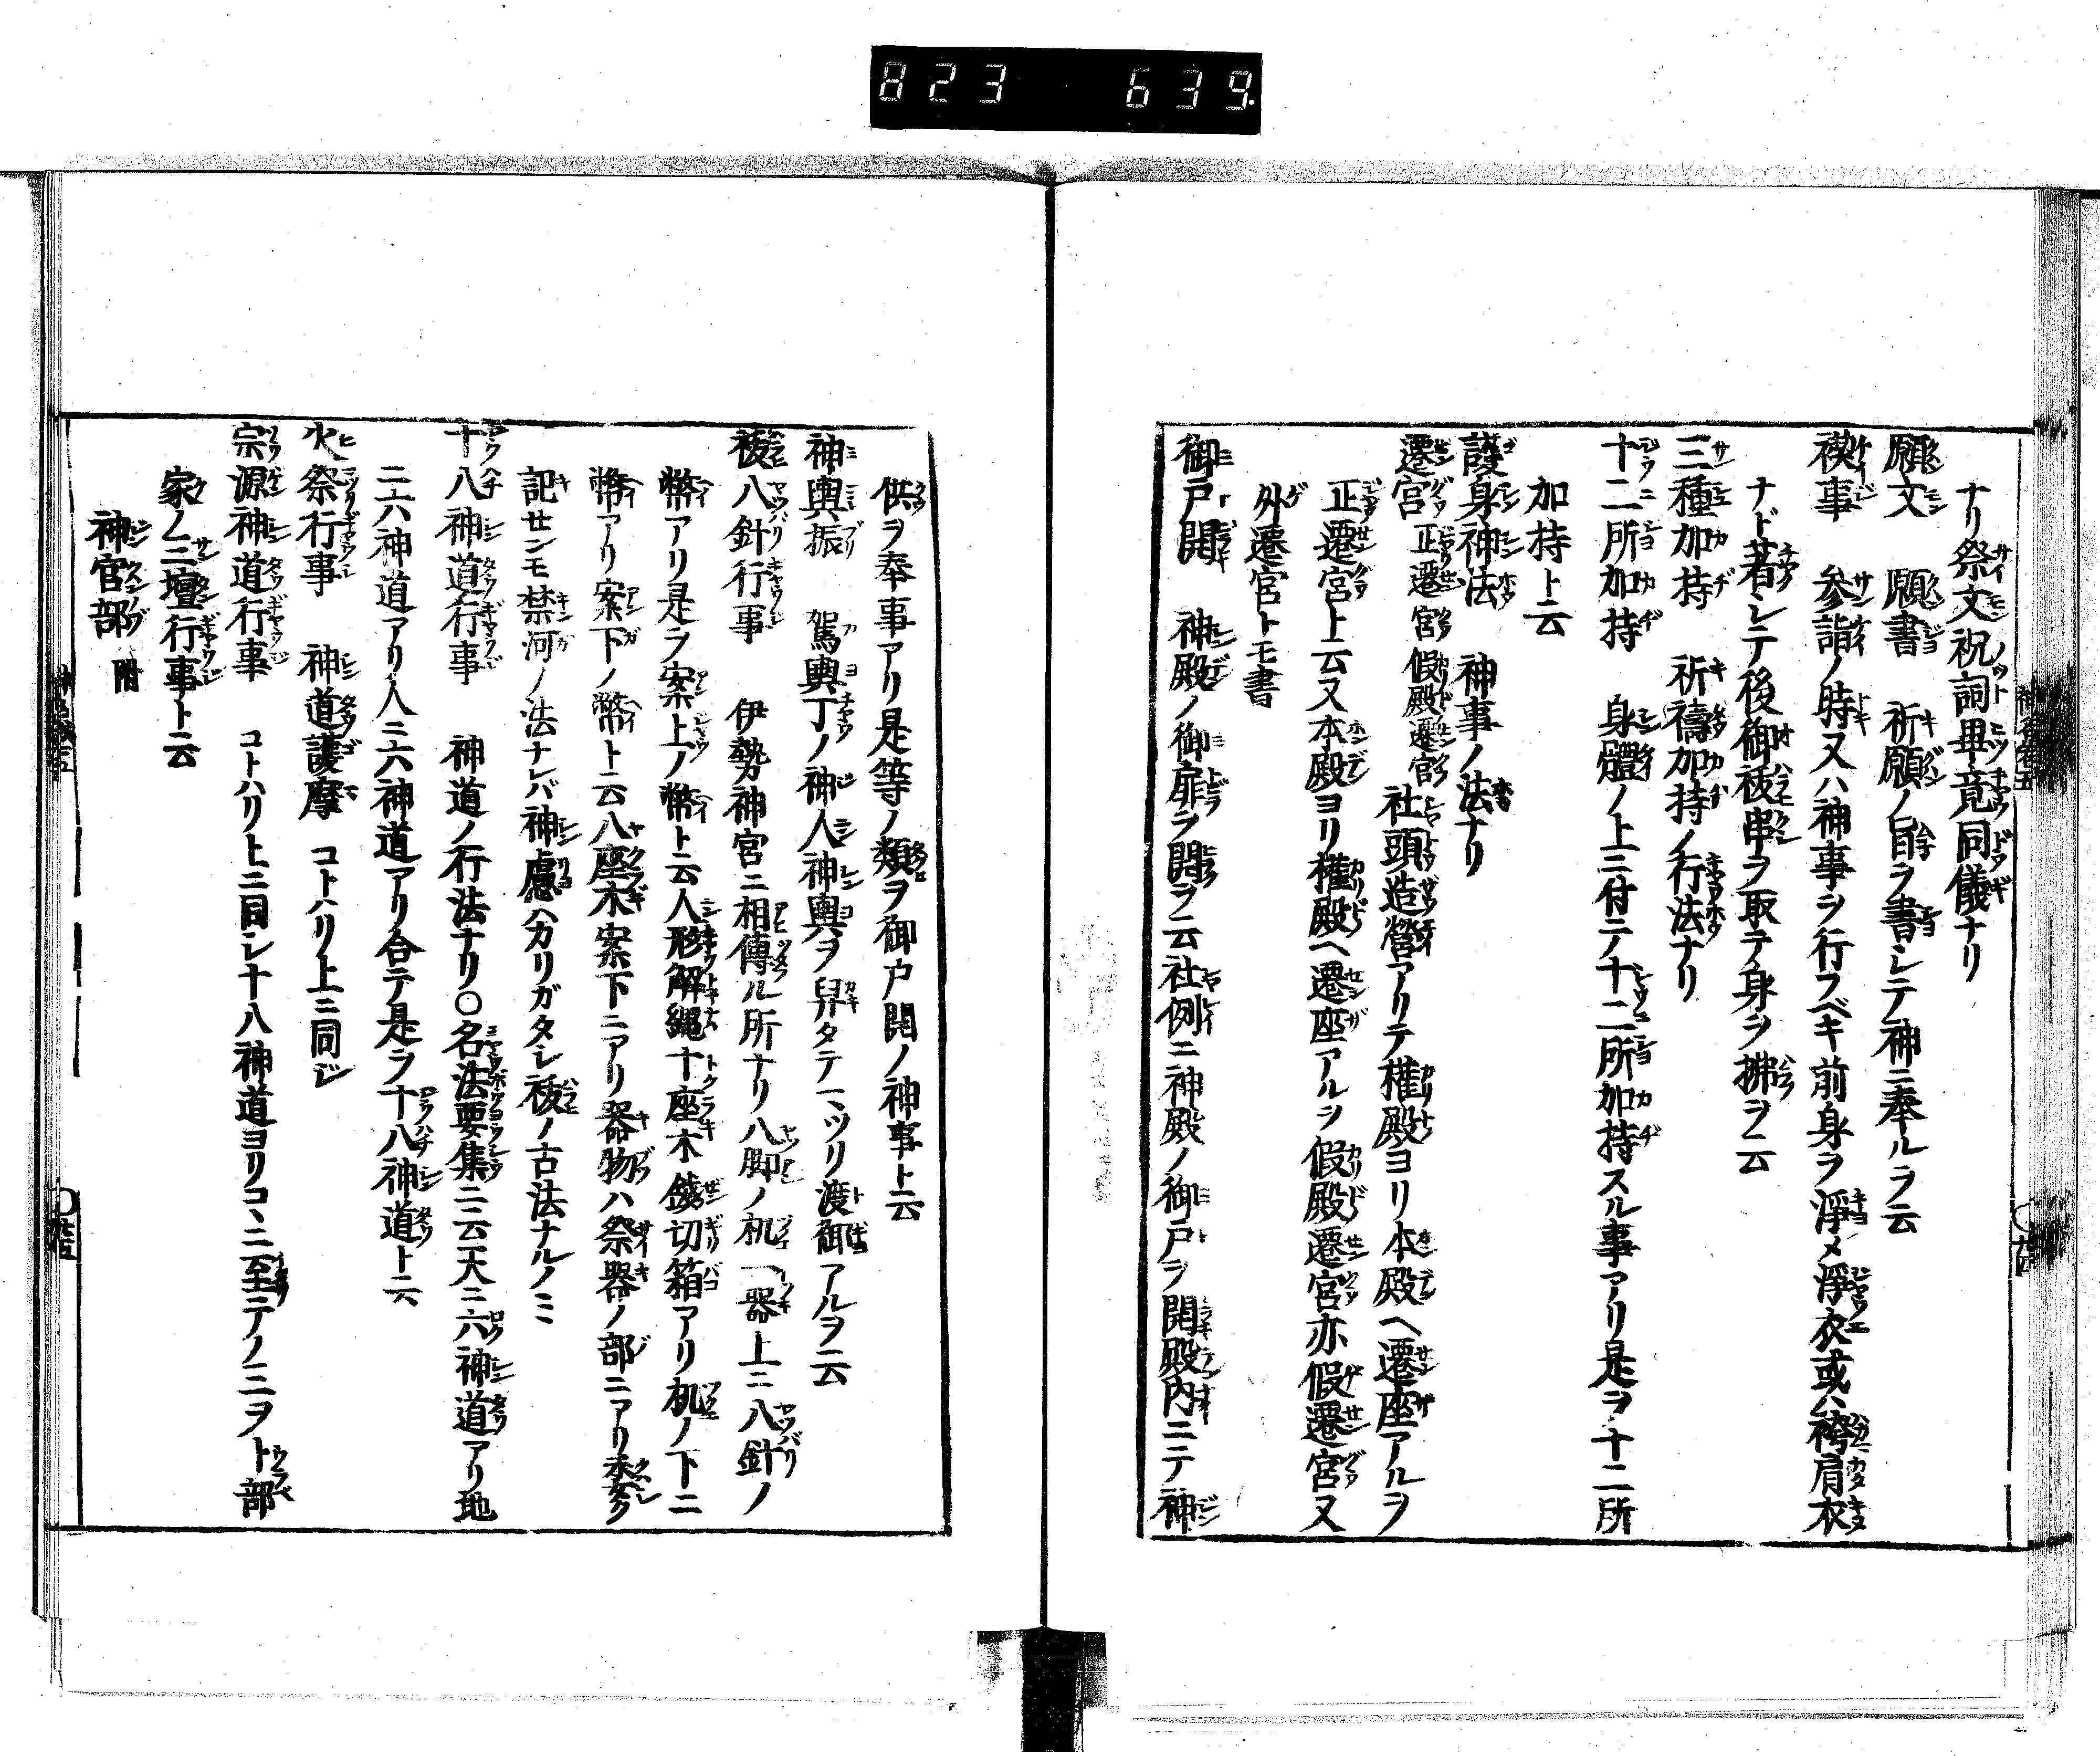 823 639.
ナリ祭文祝詞畢竟同儀ナリ
願文 願書 祈願ノ旨ヲ書シテ神ニ奉ルヲ云
禊事 参詣ノ時又ハ神事ヲ行フベキ前身ヲ淨メ淨衣或ハ袴肩衣
ナド著シテ後御祓串ヲ取テ身ヲ拂ヲ云
三種加持 祈禱加持ノ行法ナリ
十二所加持 身體ノ上ニ付テノ十二所加持スル事アリ是ヲ十二所
加持ト云
護身神法 神事ノ法ナリ
遷宮 正遷宮 假殿遷宮 社頭造營アリテ權殿ヨリ本殿ヘ遷座アルヲ
正遷宮ト云又本殿ヨリ權殿ヘ遷座アルヲ假殿遷宮亦假遷宮又
外遷宮トモ書
御戸開 神殿ノ御扉ヲ開ヲ云社例ニ神殿ノ御戸ヲ開殿内ニテ神
供ヲ奉事アリ是等ノ類ヲ御戸開ノ神事ト云
神輿振 駕輿丁ノ神人神輿ヲ舁タテマツリ渡御アルヲ云
祓八針行事 伊勢神宮ニ相傳ル所ナリ八脚ノ机一器上ニ八針ノ
幣アリ是ヲ案上ノ幣ト云人形解縄十座木錢切箱アリ机ノ下ニ
幣アリ案下ノ幣ト云八座木案下ニアリ器物ハ祭器ノ部ニアリ委ク
記センモ禁河ノ法ナレバ神慮ハカリガタシ祓ノ古法ナルノミ
十八神道行事 神道ノ行法ナリ○名法要集ニ云天ニ六神道アリ地
ニ六神道アリ人ニ六神道アリ合テ是ヲ十八神道ト云
火祭行事 神道護摩 コトハリ上ニ同ジ
宗源神道行事 コトハリ上ニ同シ十八神道ヨリコヽニ至テノ三ヲト部
家ノ三壇行事ト云
神官部 附